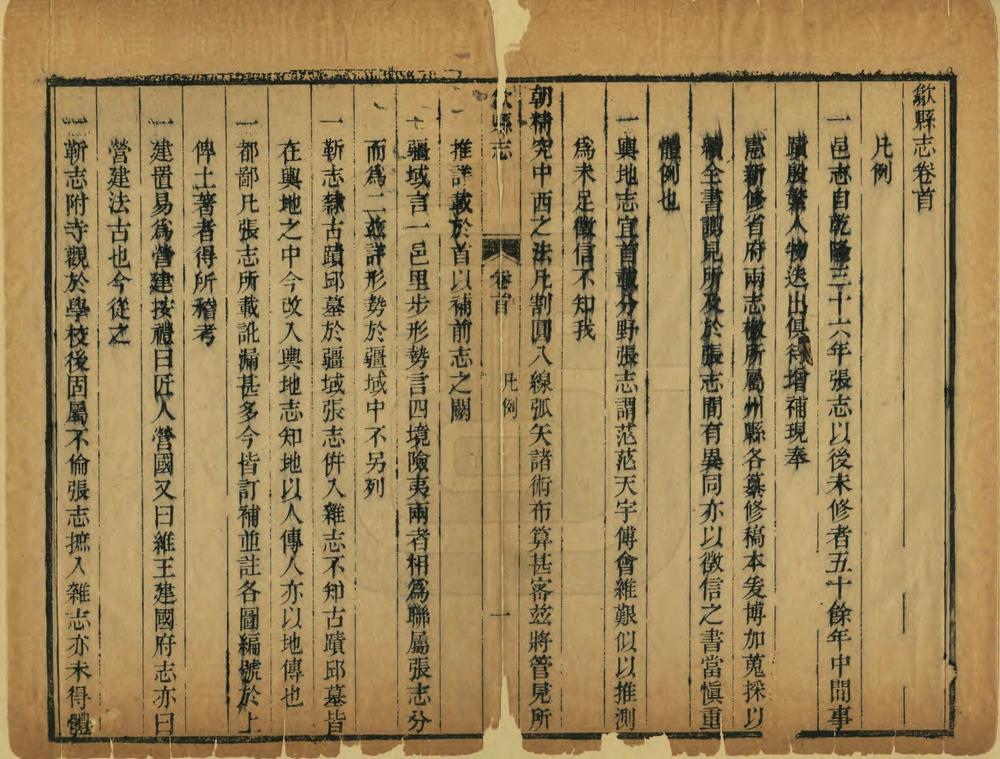 歙縣志卷首
凡例
一邑志自乾隆三十六年張志以後未修者五十餘年中間事
蹟殷繁人物迭出俱待增補現奉
憲新修省府兩志檄所屬州縣各纂修稿本爰博加蒐採以
續全書謭見所及於張志間有異同亦以徵信之書當慎重
體例也
一輿地志宜首載分野張志謂茫茫天宇傅會維艱似以推測
為未足徵信不知我
朝精究中西之法凡割圓八線弧矢諸術布算甚密茲將管見所
歙縣志
卷首
凡例
一
推詳載於首以補前志之闕
一疆域言一邑里步形勢言四境險夷兩者相為聯屬張志分
而為二茲詳形勢於疆域中不另列
一靳志隸古蹟邱墓於疆域張志併入雜志不知古蹟邱墓皆
在輿地之中今改入輿地志知地以人傳人亦以地傳也
一都鄙凡張志所載訛漏甚多今皆訂補並註各圖編號於上
俾土著者得所稽考
一建置易為營建按禮曰匠人營國又曰維王建國府志亦曰
營建法古也今從之
一靳志附寺觀於學校後固屬不倫張志摭入雜志亦未得體